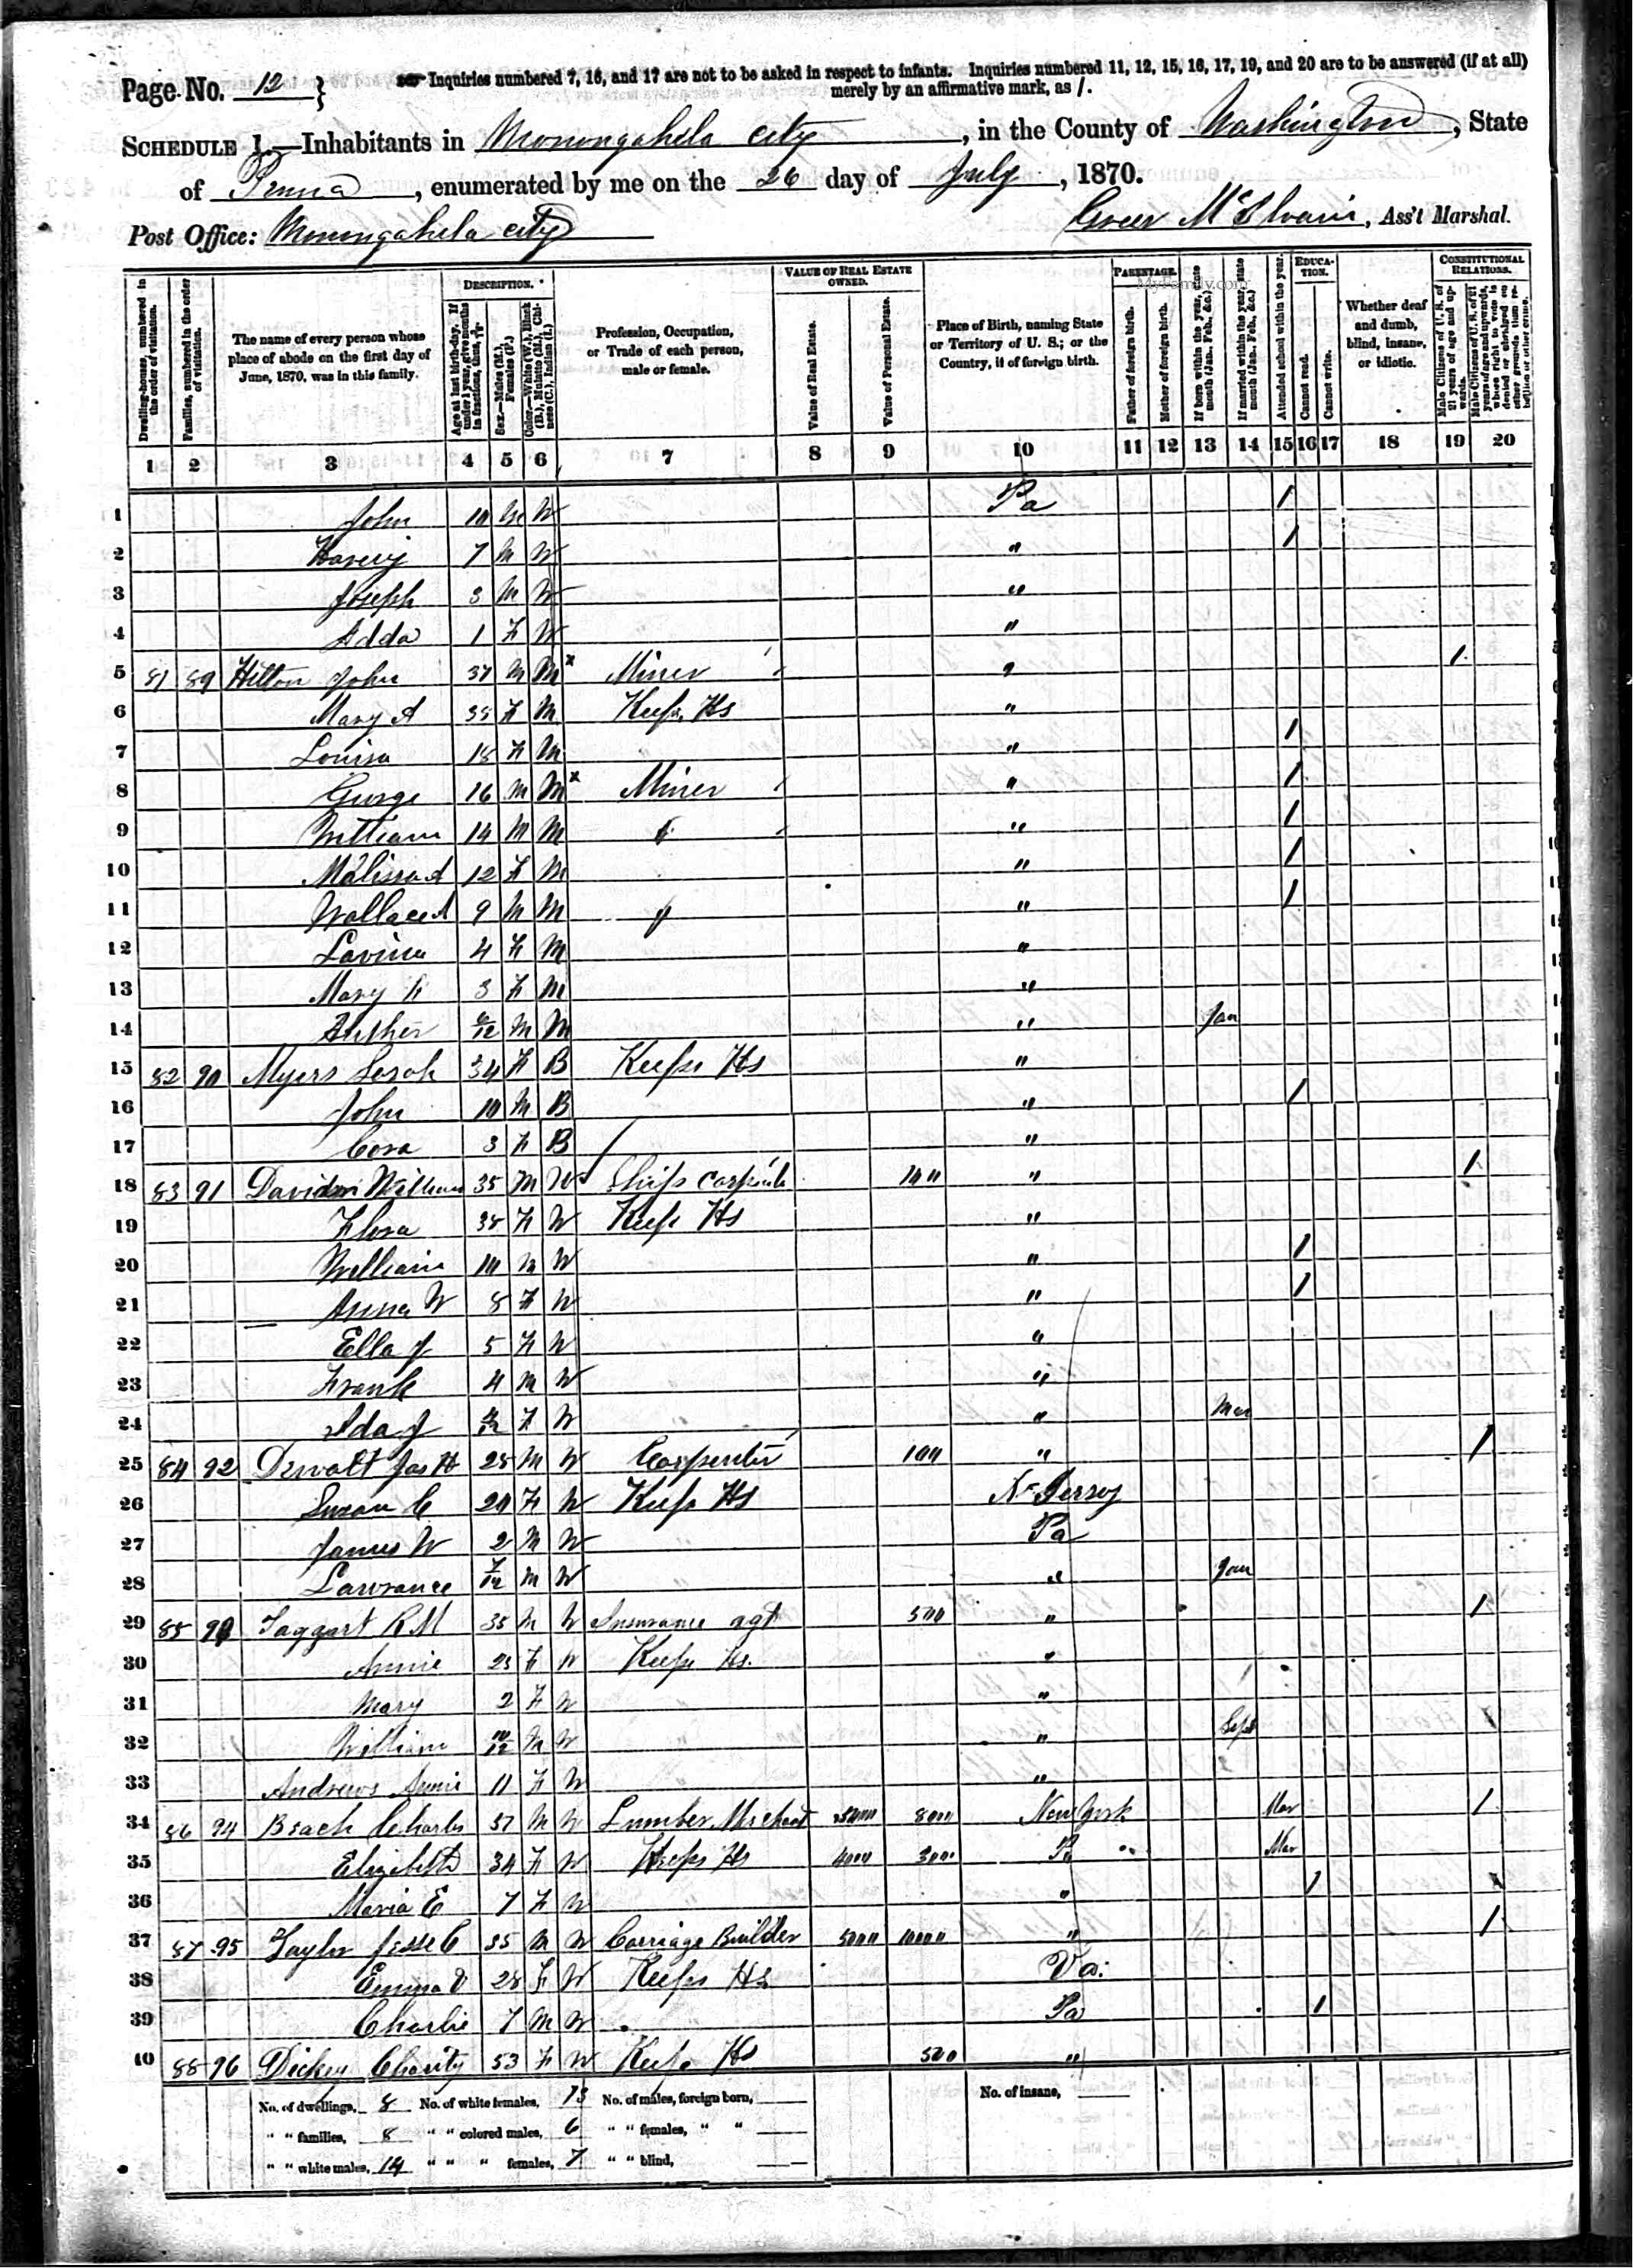 Page No. 12 } Inquiries numbered 7, 16, and 17 are not to be asked in respect to infants. Inquiries numbered 11, 12, 15, 16, 17, 19, and 20 are to be answered (if at all)
merely by an affirmative mark, as /.
SCHEDULE 1.—Inhabitants in Monongahela City, in the County of Washington, State
of Penna, enumerated by me on the 26 day of July, 1870.
Post Office: Monongahela City
Ass't Marshal.
MyFamily.com
Dwelling-houses, numbered in the order of visitation.
Families, numbered in the order of visitation.
The name of every person whose place of abode on the first day of June, 1870, was in this family.
DESCRIPTION.
Age at last birth-day. If under 1 year, give months in fractions, thus,
Sex.—Males (M.), Females (F.)
Color.—White (W.), Black (B.), Mulatto (M.), Chinese (C.), Indian (I.)
Profession, Occupation, or Trade of each person, male or female.
VALUE OF REAL ESTATE OWNED.
Value of Real Estate.
Value of Personal Estate.
Place of Birth, naming State or Territory of U. S.; or the Country, if of foreign birth.
PARENTAGE.
Father of foreign birth.
Mother of foreign birth.
If born within the year, state month (Jan., Feb., &c.)
If married within the year, state month (Jan., Feb., &c.)
Attended school within the year.
EDUCATION.
Cannot read.
Cannot write.
Whether deaf and dumb, blind, insane, or idiotic.
CONSTITUTIONAL RELATIONS.
Male Citizens of U. S. of 21 years of age and upwards.
Male Citizens of U. S. of 21 years of age and upwards, whose right to vote is denied or abridged on other grounds than rebellion or other crime.
1 2 3 4 5 6 7 8 9 10 11 12 13 14 15 16 17 18 19 20
1 John 10 M W Pa /
2 7 M W " /
3 Joseph 3 M W "
4 Adda 1 F W "
5 81 89 Hilton John 37 M M x Miner " /
6 Mary A 35 F M Keeps Hs "
7 Louisa 18 F M " /
8 George 16 M M x Miner " /
9 William 14 M M " " /
10 Malissa A 12 F M " /
11 Wallace A 9 M M " " /
12 Lavina 4 F M "
13 Mary F 3 F M "
14 Auther 6/12 M M " Jan
15 82 90 Myers Sarah 34 F B Keeps Hs "
16 John 10 M B " /
17 Cora 3 F B "
18 83 91 William 35 M W Ship Carpente 100 " /
19 Flora 38 F W Keeps Hs "
20 William 10 M W " /
21 Anna W 8 F W " /
22 Ella J 5 F W "
23 Frank 4 M W "
24 Ida J F W " Mar
25 84 92 Dewalt Jas H 28 M W Carpenter 100 " /
26 Susan C 20 F W Keeps Hs N Jersey
27 James W 2 M W Pa
28 Lawrance M W " Jan
29 85 Taggart R M 35 M W Insurance agt 500 " /
30 Annie 25 F W Keeps Hs "
31 Mary 2 F W "
32 William 10/12 M W " Sept
33 Andrews Annie 11 F W "
34 86 94 Beach Charles 57 M W Lumber Merchant 8000 New York Mar /
35 Elizabeth 34 F W Keeps Hs 4000 3000 Pa Mar
36 Maria E 7 F W " /
37 87 95 Taylor Jesse C 35 M W Carriage Builder 5000 10000 " /
38 Emma V 28 F W Keeps Hs Va.
39 Charlie 7 M W Pa /
40 88 96 Dickey Charity 53 F W Keeps Hs 500 "
No. of dwellings, 8 No. of white females, 13 No. of males, foreign born, No. of insane,
" " families, 8 " " colored males, 6 " " females, " "
" " white males, 14 " " " females, 7 " " blind,